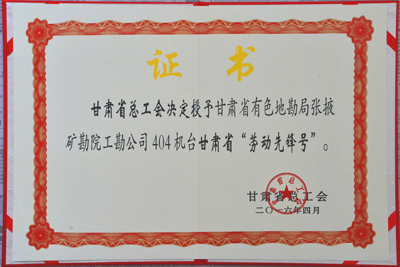 证书
甘肃省总工会决定授予甘肃省有色地勘局张掖
矿勘院工勘公司404机台甘肃省“劳动先锋号”。
甘肃省总工会
二〇一六年四月